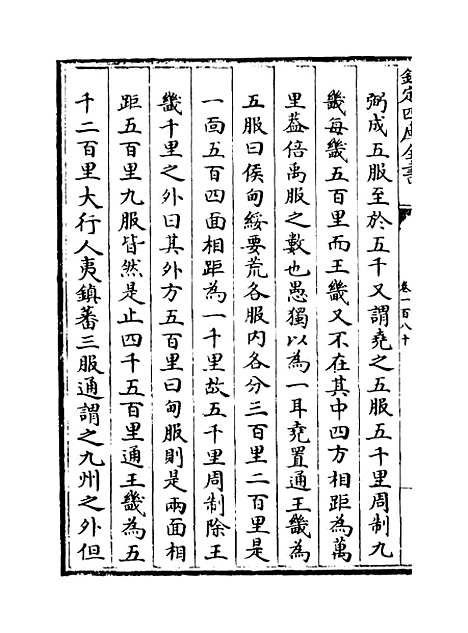 欽定四庫全書
卷一百八十
弼成五服至於五千又謂堯之五服五千里周制九
畿每畿五百里而王畿又不在其中四方相距為萬
里葢倍禹服之數也愚獨以為一耳堯置通王畿為
五服曰侯甸綏要荒各服内各分三百里二百里是
一面五百四面相距為一千里故五千里周制除王
畿千里之外曰其外方五百里曰甸服則是兩面相
距五百里九服皆然是止四千五百里通王畿為五
千二百里大行人夷鎮蕃三服通謂之九州之外但